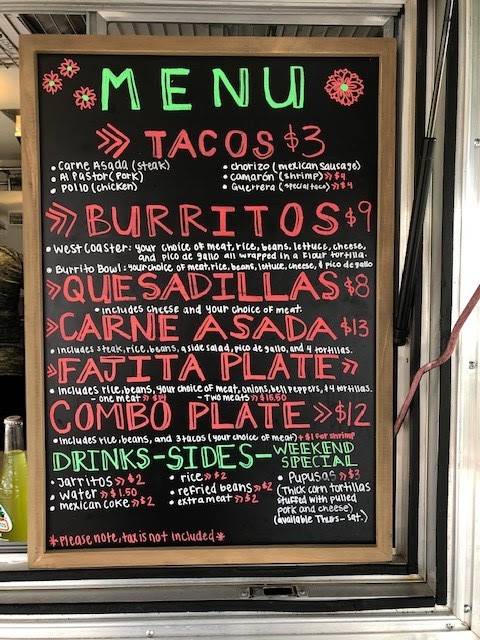 MENU
>> TACOS $3
• Carne Asada (steak)
• Al Pastor (Pork)
• Pollo (chicken)
• chorizo (mexican sausage)
• camarón (shrimp) >> $4
• Guerrera (special taco) >> $4
>> BURRITOS $9
• West Coaster: your choice of meat, rice, beans, lettuce, cheese,
and pico de gallo all wrapped in a flour tortilla.
• Burrito Bowl: your choice of meat, rice, beans, lettuce, cheese, & pico de gallo
>QUESADILLAS $8
• includes cheese and your choice of meat.
>CARNE ASADA $13
• Includes steak, rice, beans, a side salad, pico de gallo, and 4 tortillas.
>FAJITA PLATE>
• Includes rice, beans, your choice of meat, onions, bell peppers, & 4 tortillas.
- one meat >> $14 - Two meats >> $16.50
COMBO PLATE >> $12
• Includes rice, beans, and 3 tacos (your choice of meat) + $1 for shrimp
DRINKS-SIDES-WEEKEND
SPECIAL
• Jarritos >> $2
• water >> $1.50
• mexican coke >> $2
• rice >> $2
• refried beans >> $2
• extra meat >> $2
• Pupusas >> $3
(Thick corn tortillas
stuffed with pulled
pork and cheese)
(available Thurs- Sat.)
* Please note, tax is not included *